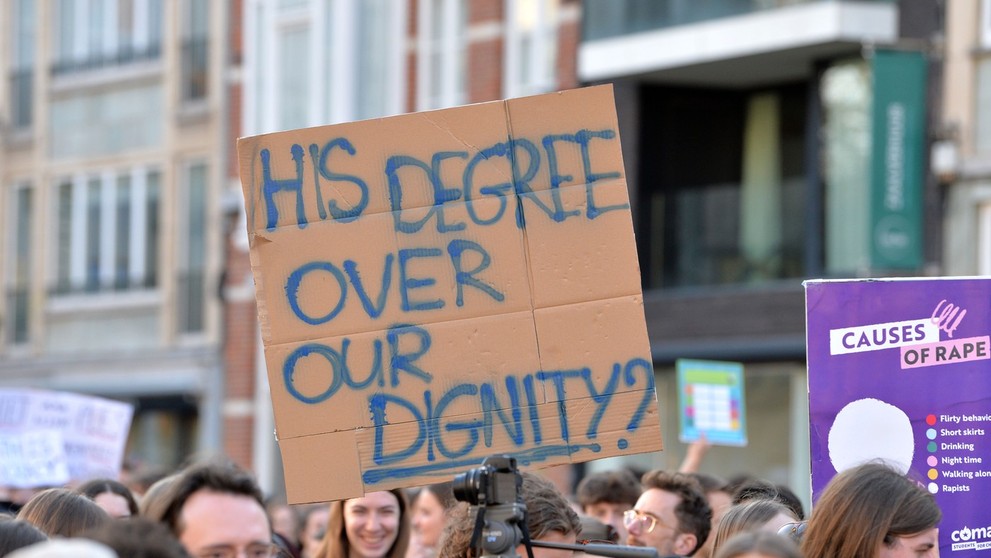 HIS DEGREE
OVER
OUR
DIGNITY?
CAUSES
OF RAPE
Flirty behavio
Short skirts
Drinking
Night time
Walking alon
Rapists